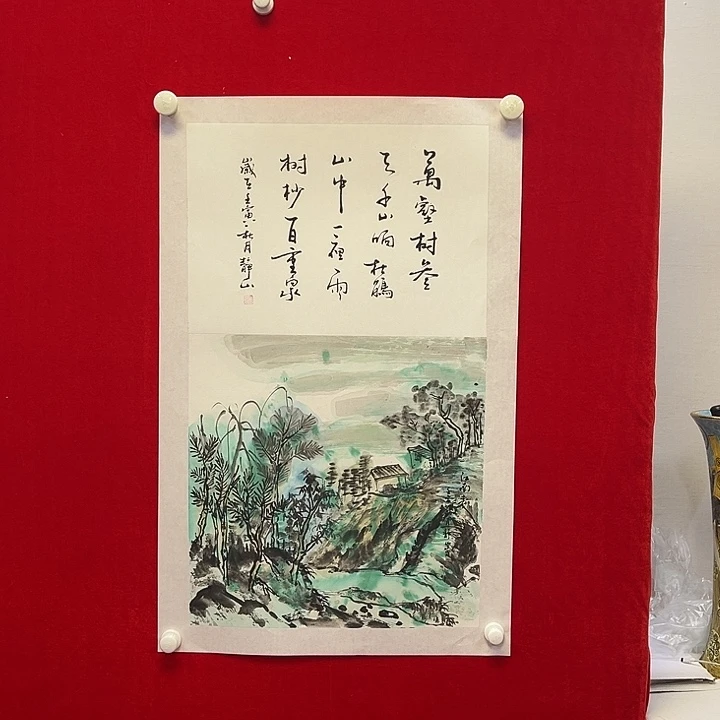 萬壑树参
天千山响杜鵑
山中一夜雨
树杪百重泉
歲在壬寅秋月靜山